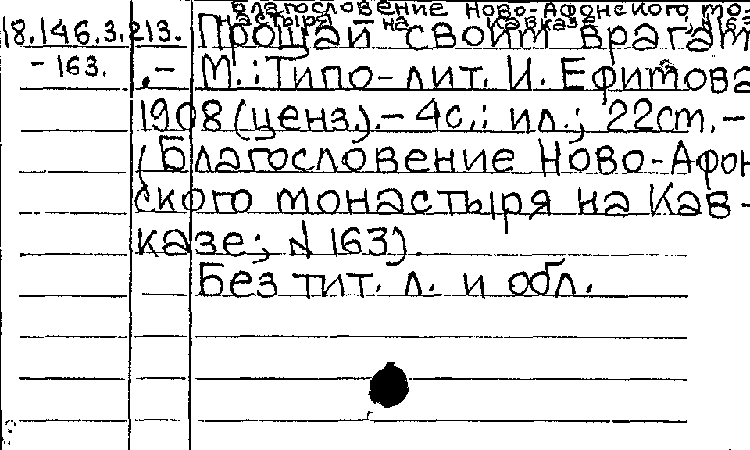 Благословение Ново-Афонского мо-
настыря на Кавказе, N 163
18.146.3.213. Прощай своим врагам
-163. .- М.: Типо-лит. И. Ефимова
1908 (ценз.).- 4с.: ил.; 22см.-
(Благословение Ново-Афон
ского монастыря на Кав-
казе; N 163).
Без тит. л. и обл.